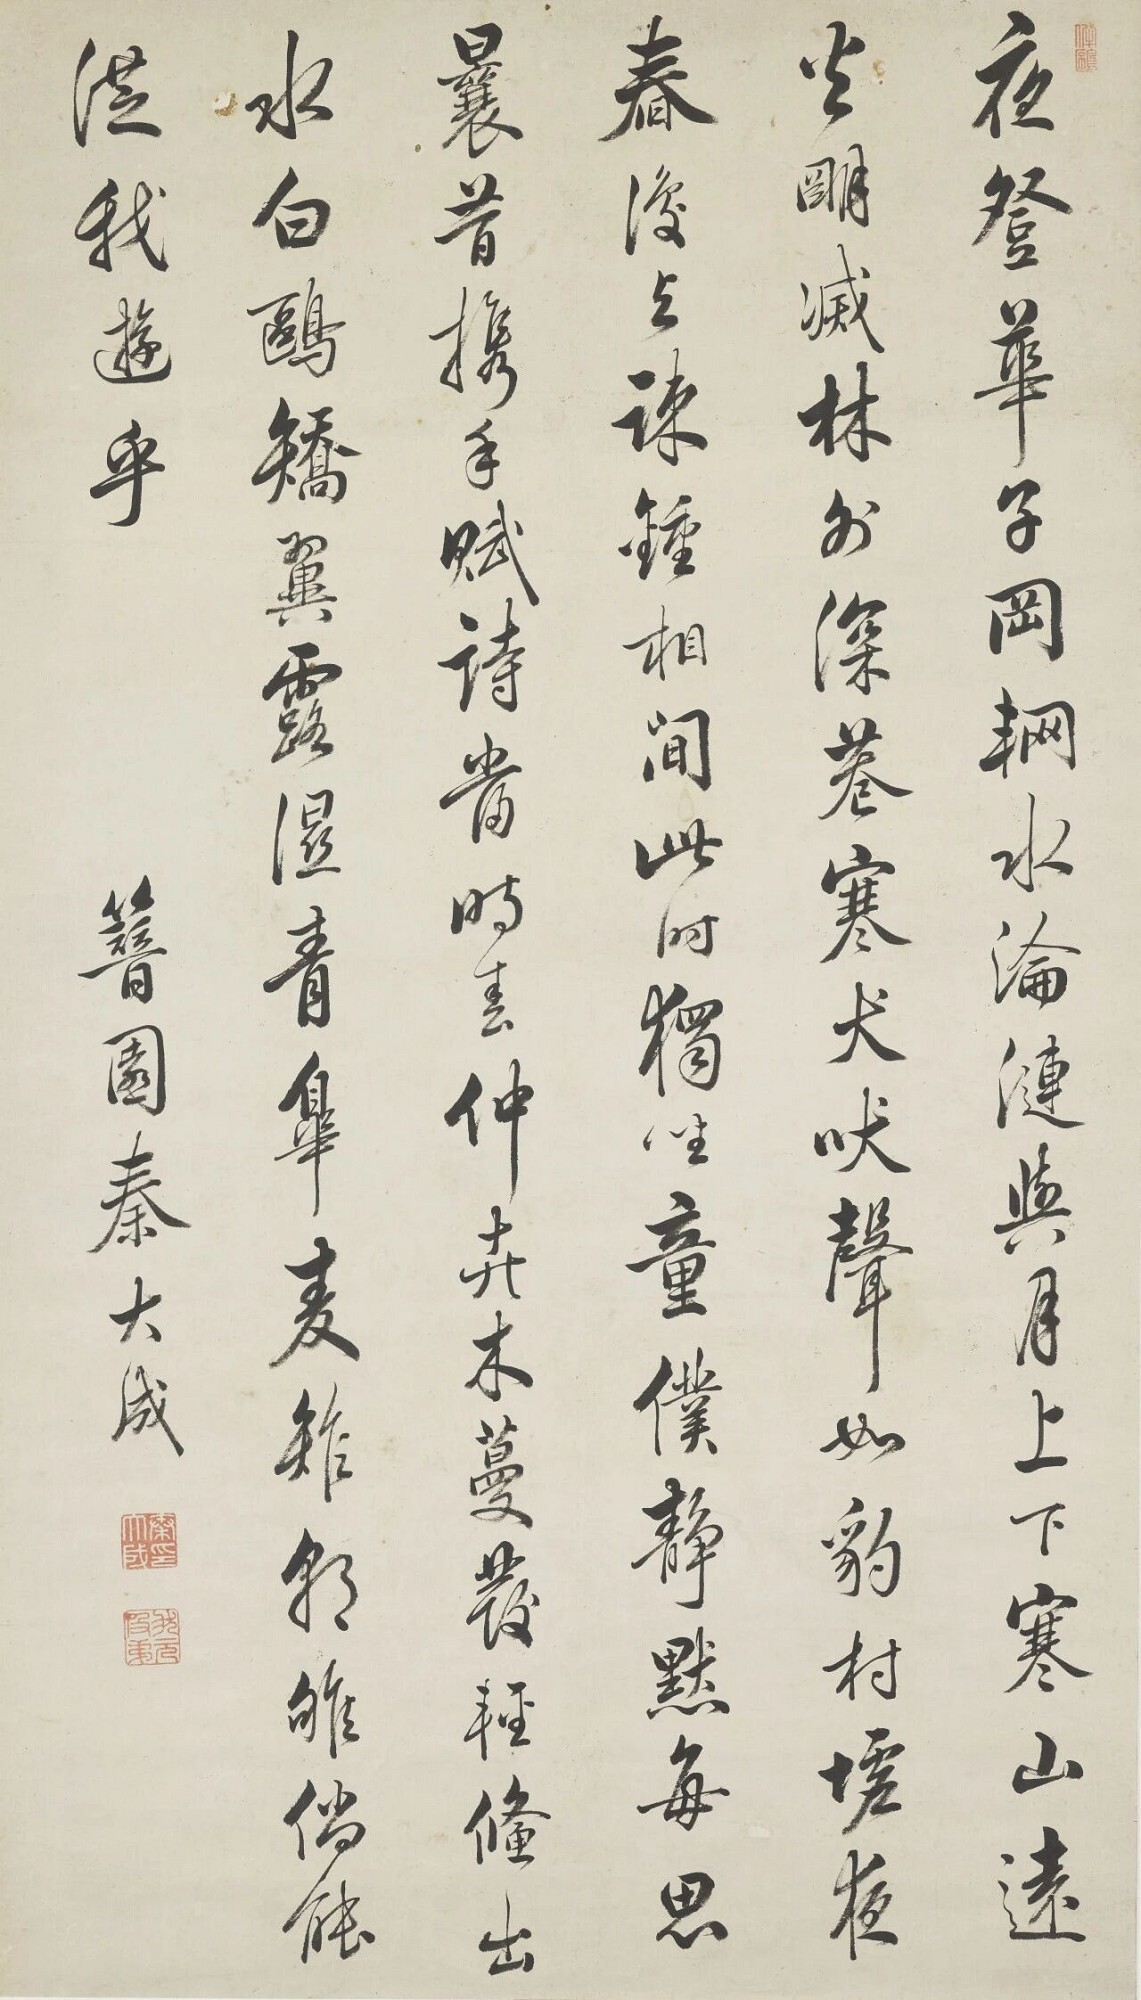 夜登華子岡輞水淪漣與月上下寒山遠
火朙滅林外深巷寒犬吠聲如豹村墟夜
舂復与疎鍾相間此時獨坐童僕靜默每思
曩昔携手賦詩當時春仲卉木蔓發輕鯈出
水白鷗矯翼露濕青皋麦雉朝雊倘能
從我遊乎
簪園秦大成
秦印大成
狀元及第